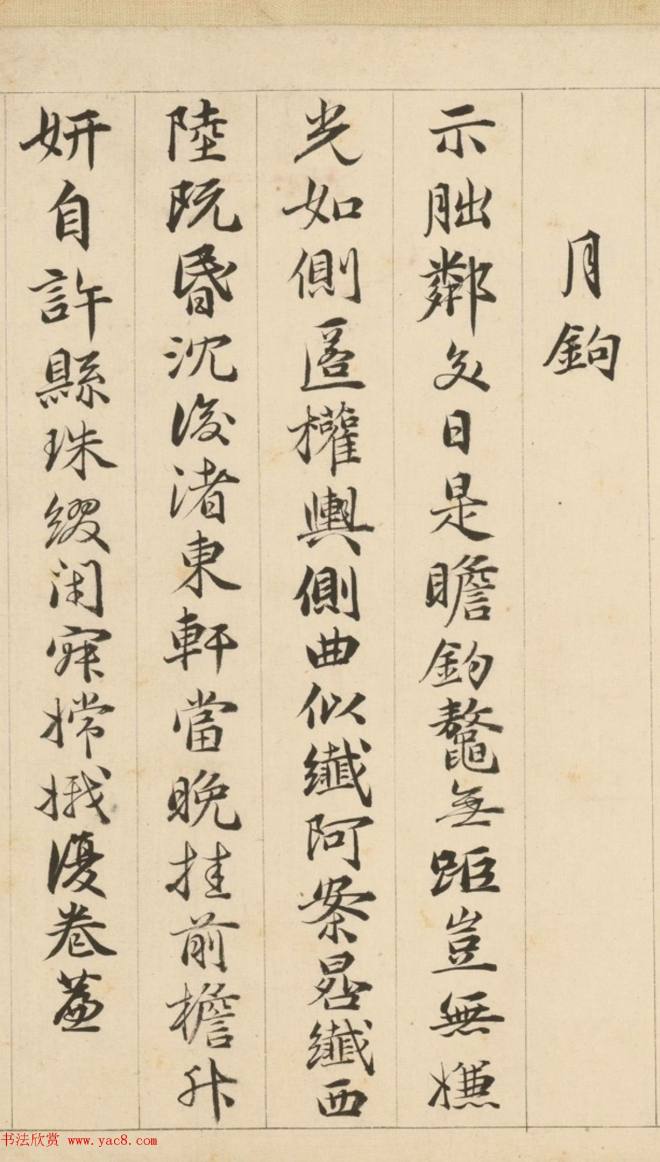 月鉤
示朏鄰交日是瞻鉤鼇無距豈無嫌
光如側匿權輿側曲似纖阿案晷纖西
陸既昏沈後渚東軒當晚挂前檐升
妍自許縣珠綴閑寐搾優卷蓋
书法欣赏 www.yac8.com